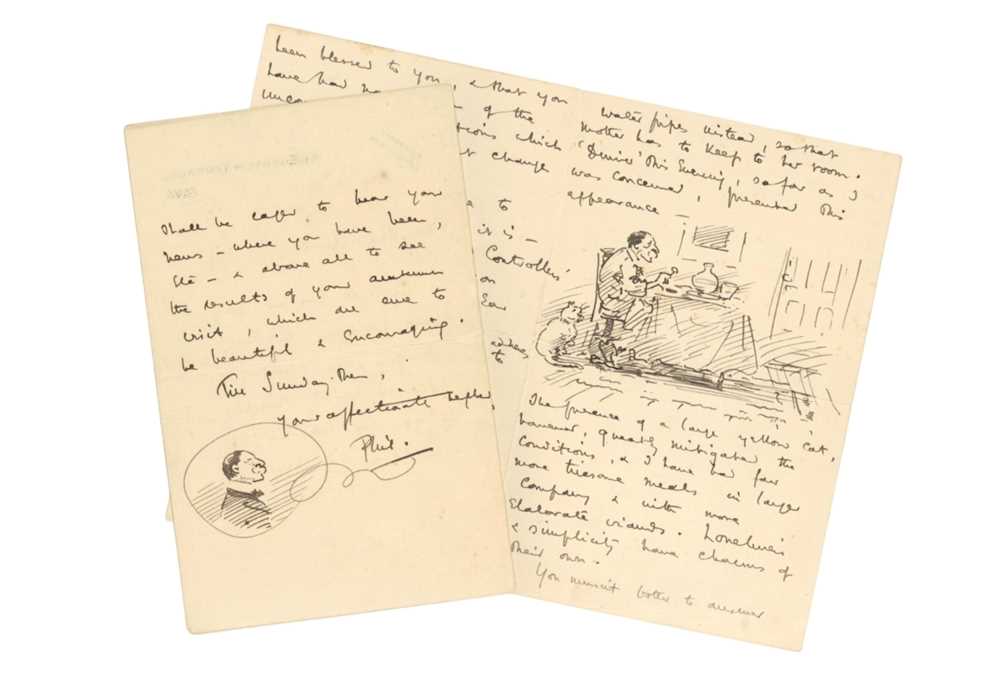 been blessed to you, & that you
have had no
of the
which
change
to
it is –
Controllers'
on
Ear
address
to
water pipes instead, so that
mother has to keep to her room.
'Dinner' this evening, so far as I
was concerned, presented this
appearance –
The presence of a large yellow cat,
however, greatly mitigated the
conditions, & I have had far
more tiresome meals in larger
company & with more
Elaborate viands. Loneliness
& simplicity have charms of
their own.
You mustn't bother to answer
shall be eager to hear your
news – where you have been,
etc – & above all to see
the results of your
visit, which are sure to
be beautiful & encouraging.
Till Sunday then,
your affectionate nephew,
Phil.